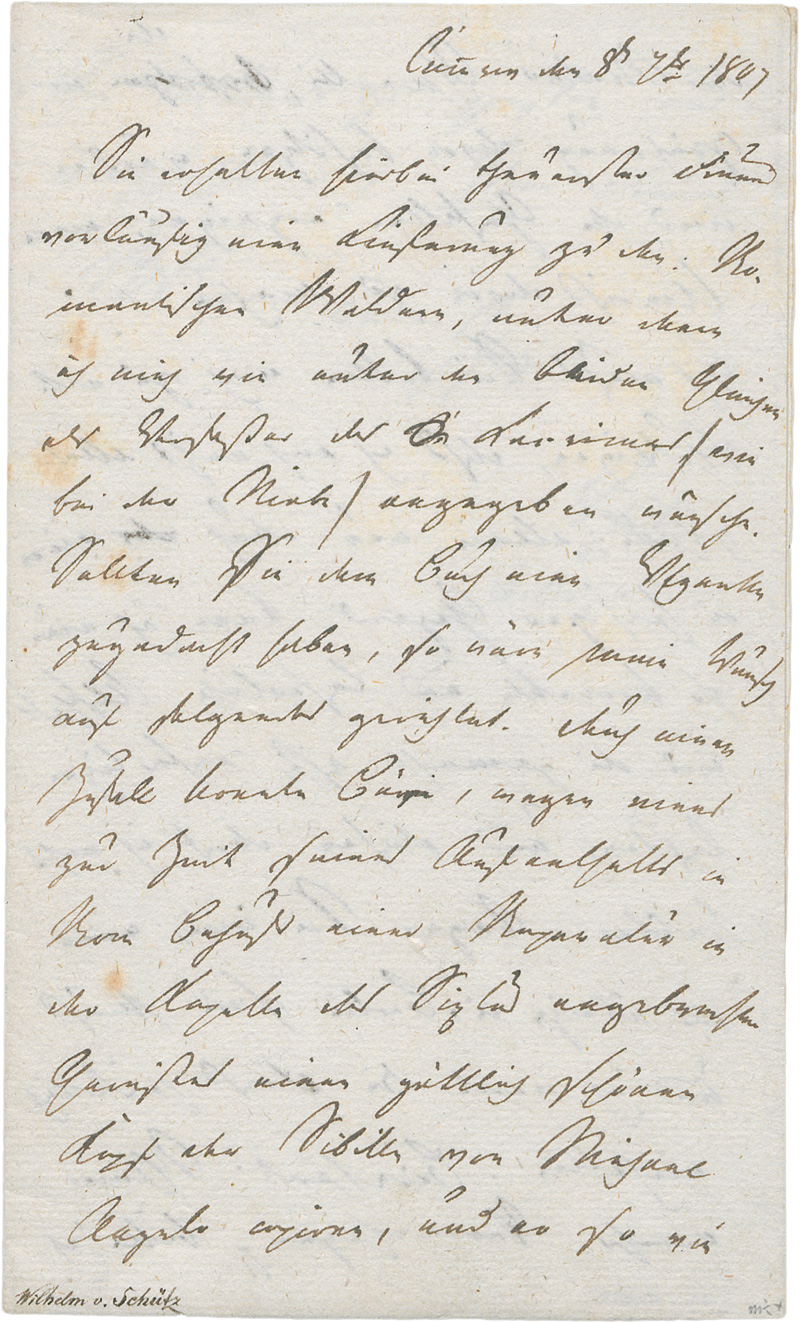 den 8t 7br 1807
Sie erhalten hierbei theuerster Freund
vorläufig eine Lieferung zu den: Ro-
mantischen Wäldern, unter denen
ich mich wie unter den beiden
als Verfasser des Lacrimas / wie
bei der Niobe / angegeben wünsche.
Sollten Sie dem Buch eine Vignette
zugedacht haben, so wäre mein Wunsch
auf folgendes gerichtet. Durch einen
Zufall konnte Büri, wegen eines
zur Zeit seines Aufenthalts in
Rom behufs einer Reparatur in
der Kapelle des Sixtus angebrachten
Gerüstes einen göttlich schönen
Kopf der Sibille von Michael
Angelo copiren, und er so wie
Wilhelm v. Schütz